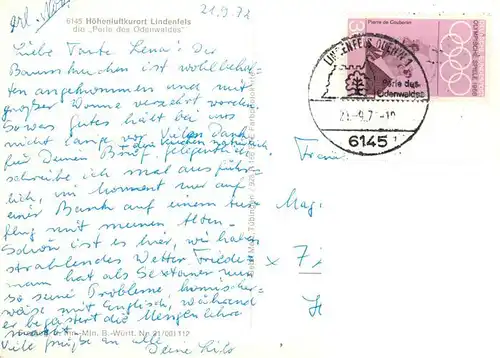 erl.
21.9.71
6145 Höhenluftkurort Lindenfels
die „Perle des Odenwaldes"
Liebe Tante Lena! Der
Baumkuchen ist wohlbehal-
ten angekommen und mit
großer Wonne verzehrt worden.
Sowas gutes hält bei uns
nicht lange vor. Vielen Dank
+ die Kuchen natürlich
für Deinen Brief, gelegentlich
schreibe ich mal ausführ-
lich, im Moment nur auf
einer Bank auf einem
flug mit meinen Alten.
Schön ist es hier, wir haben
strahlendes Wetter. Friede-
mann hat als Sextaner nun
so seine Probleme, komischer-
weise mit Englisch, während
er begeistert die Mengenlehre
macht.
Viele Grüße an alle
Deine
Pierre de Coubertin
30
LINDENFELS, ODENW 1
Perle des
Odenwaldes
21.-9.7 -10
6145
Frau
Mag
x 7
H
Min. B.-Württ. Nr. 21/001 112